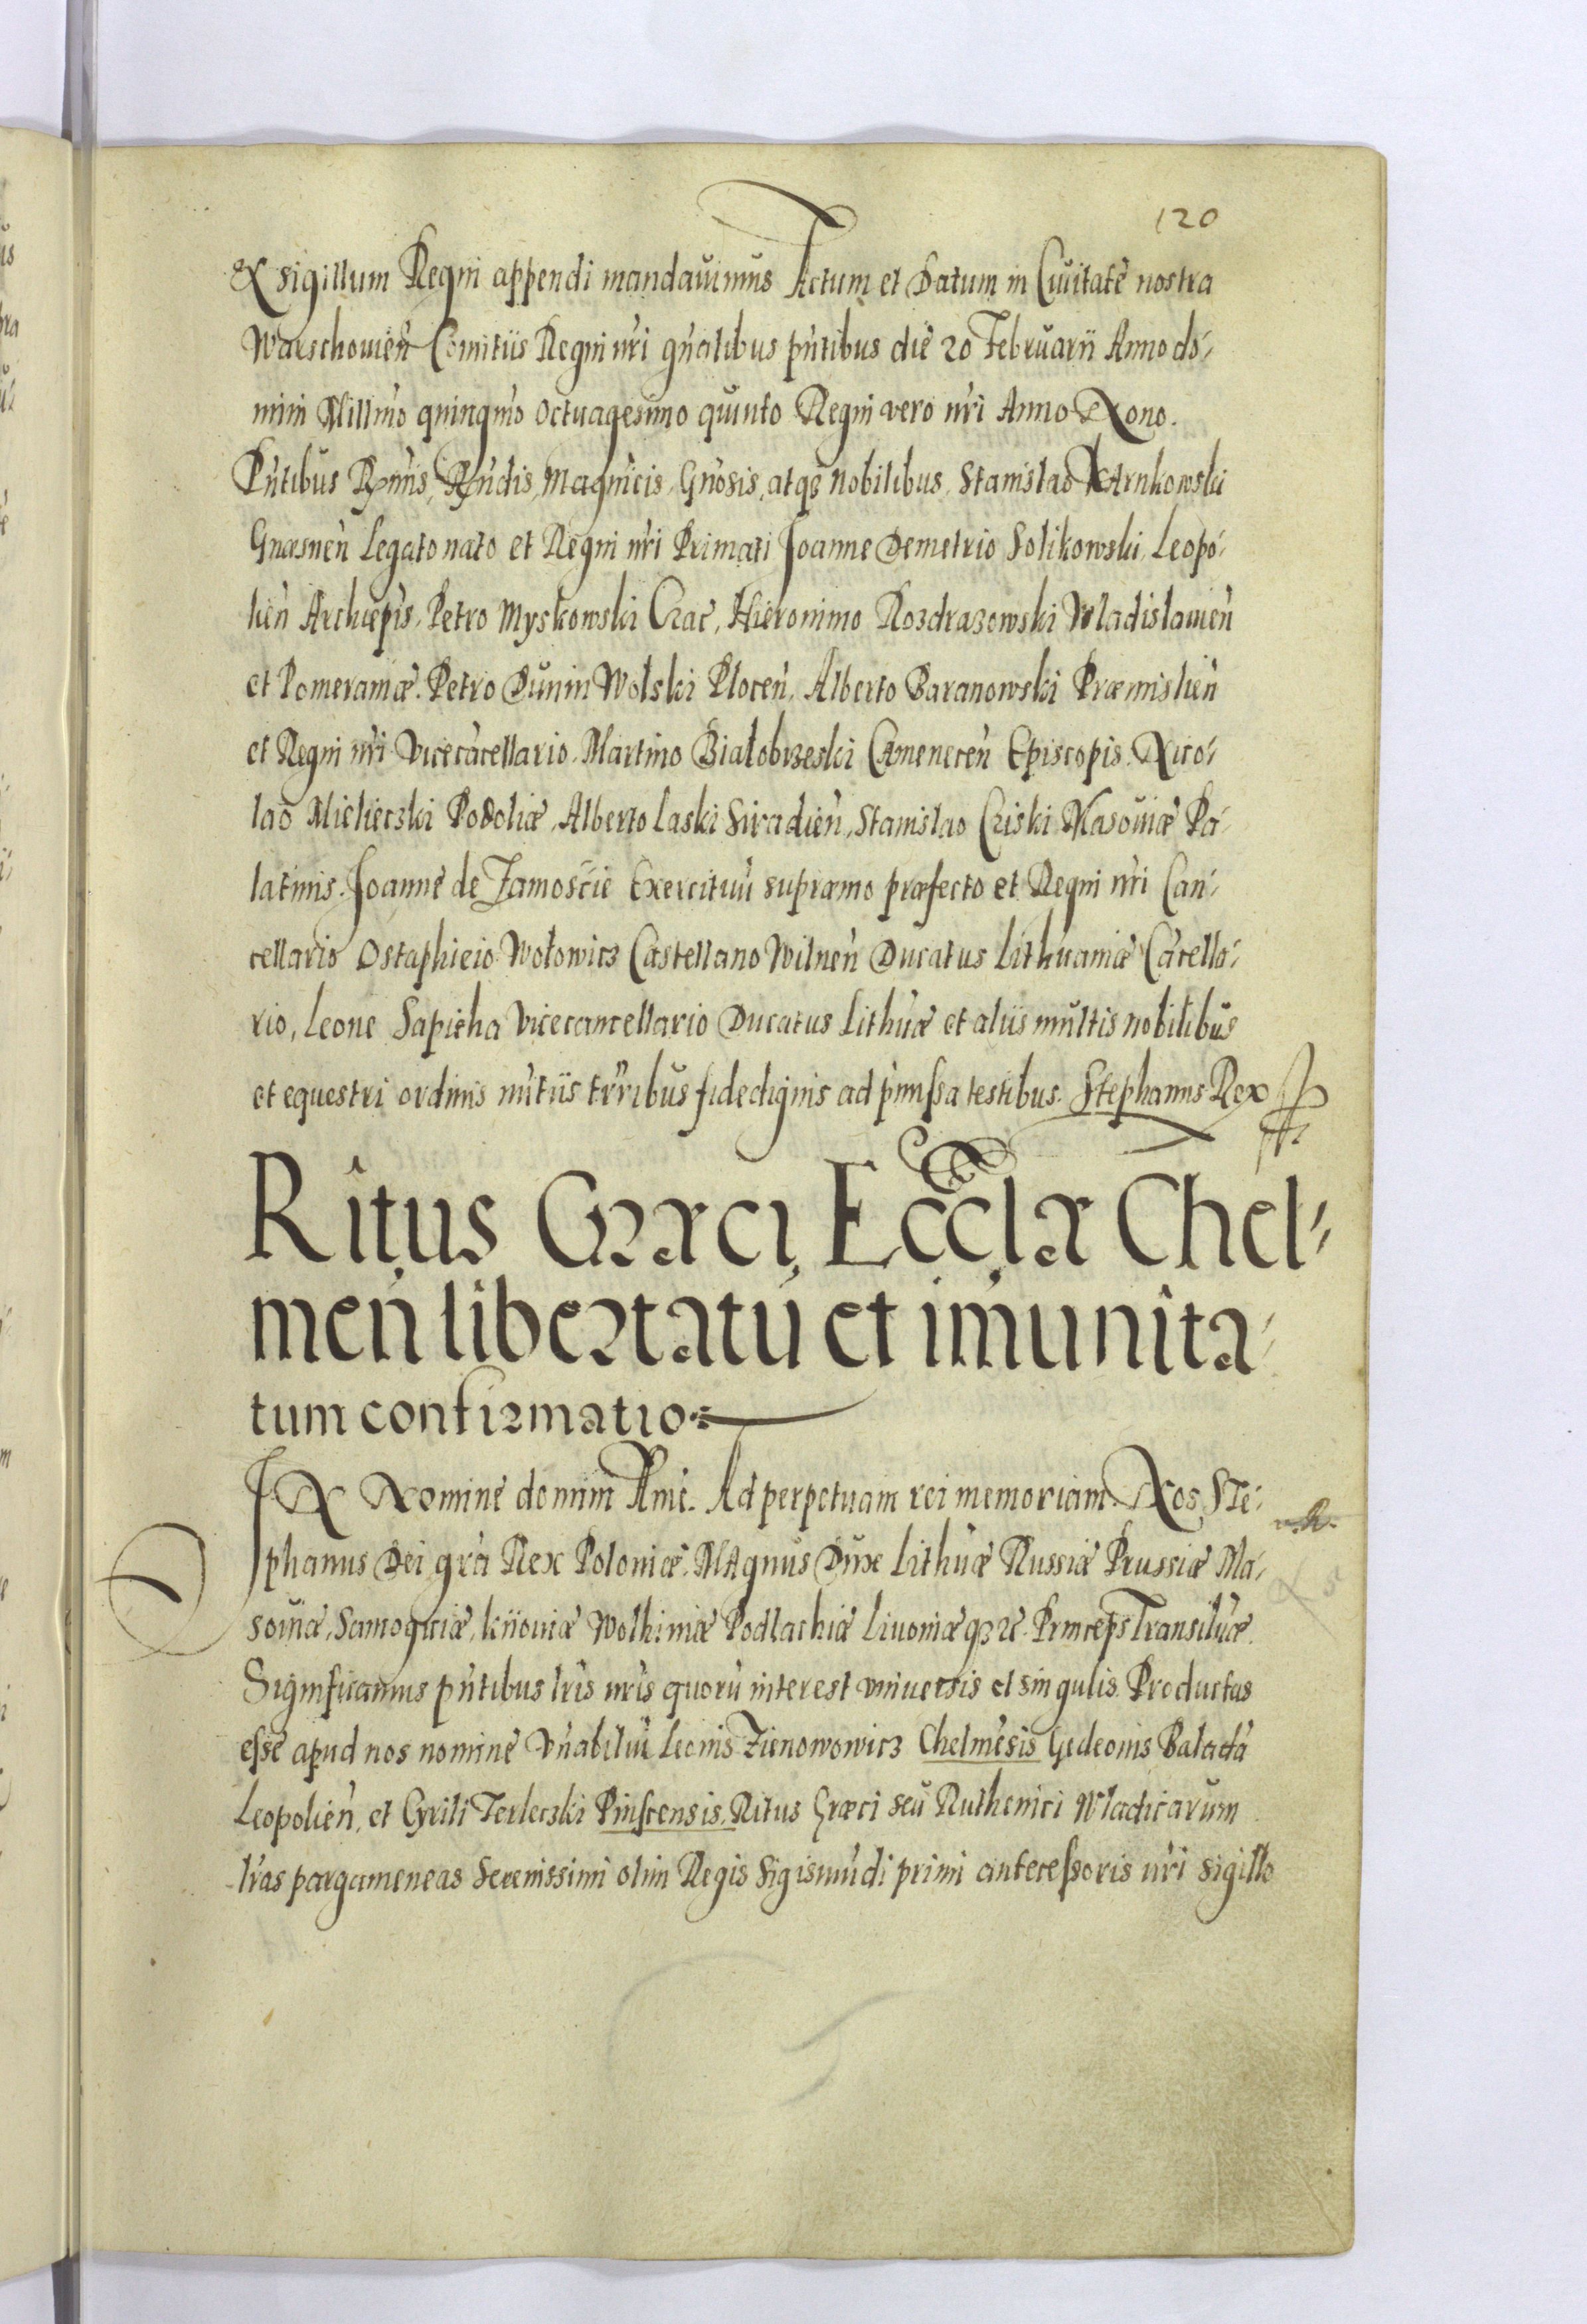 120
& sigillum Regni appendi mandavimus Actum et Datum in Civitate nostra
Warschovien̄ Comitiis Regni nr̄i gn̄alibus pn̄tibus die 20 Februarii Anno do-
mini Millmō quingmō octuagesimo quinto Regni vero nr̄i Anno Nono.
Pn̄tibus Rm̄is, Rn̄dis, Magn̄icis, Gn̄osis, atqȝ nobilibus, Stanislao Karnkowski
Gnesnen̄ Legato nato et Regni nr̄i Primati Joanne Demetrio Solikowski, Leopo-
lien̄ Archiepīs, Petro Myskowski Crac, Hieronimo Rozdrazowski Wladislavien̄
et Pomeraniæ. Petro Dunin Wolski Plocen̄, Alberto Baranowski Præmislien̄
et Regni nr̄i Vicecācellario, Martino Białobrzeski Camenecen̄ Episcopis. Nico-
lao Mieliecski Podoliæ, Alberto Laski Siradien̄, Stanislao Criski Masoviæ Pa-
latinis. Joanne de Zamoscie Exercituū supræmo præfecto et Regni nr̄i Can-
cellario Ostaphieio Wołowicz Castellano Wilnen̄ Ducatus Lithuaniæ Cācella-
rio, Leone Sapieha Vicecancellario Ducatus Lithūæ et aliis multis nobilibus
et equestri ordinis nūtiis trr̄ibus fidedignis ad pr̄missa testibus. Stephanus Rex
Ritus Græci, Eccl̄æ Chel-
men̄ libertatū et im̄unita-
tum confirmatio
IN Nomine domini Amē. Ad perpetuam rei memoriam. Nos, Ste-
phanus Dei grā Rex Poloniæ, Magnus Dux Lithūæ Russiæ Prussiæ Ma-
soviæ, Samogitiæ, kiioviæ Wolhiniæ Podlachiæ Livoniæqȝ zc̄. Princeps Transilūæ.
Significamus pn̄tibus lrīs nrīs quorū interest universis et singulis. Productas
esse apud nos nomine Vn̄abiliū Leonis Zienowowicz Chelmēsis Gedeonis Balabā
Leopolien̄, et Cyrili Terleczki Pinscensis, Ritus Græci seu Ruthenici Wladicarum
lrās pargameneas Serenissimi olim Regis Sigismūdi primi antecessoris nr̄i sigillo